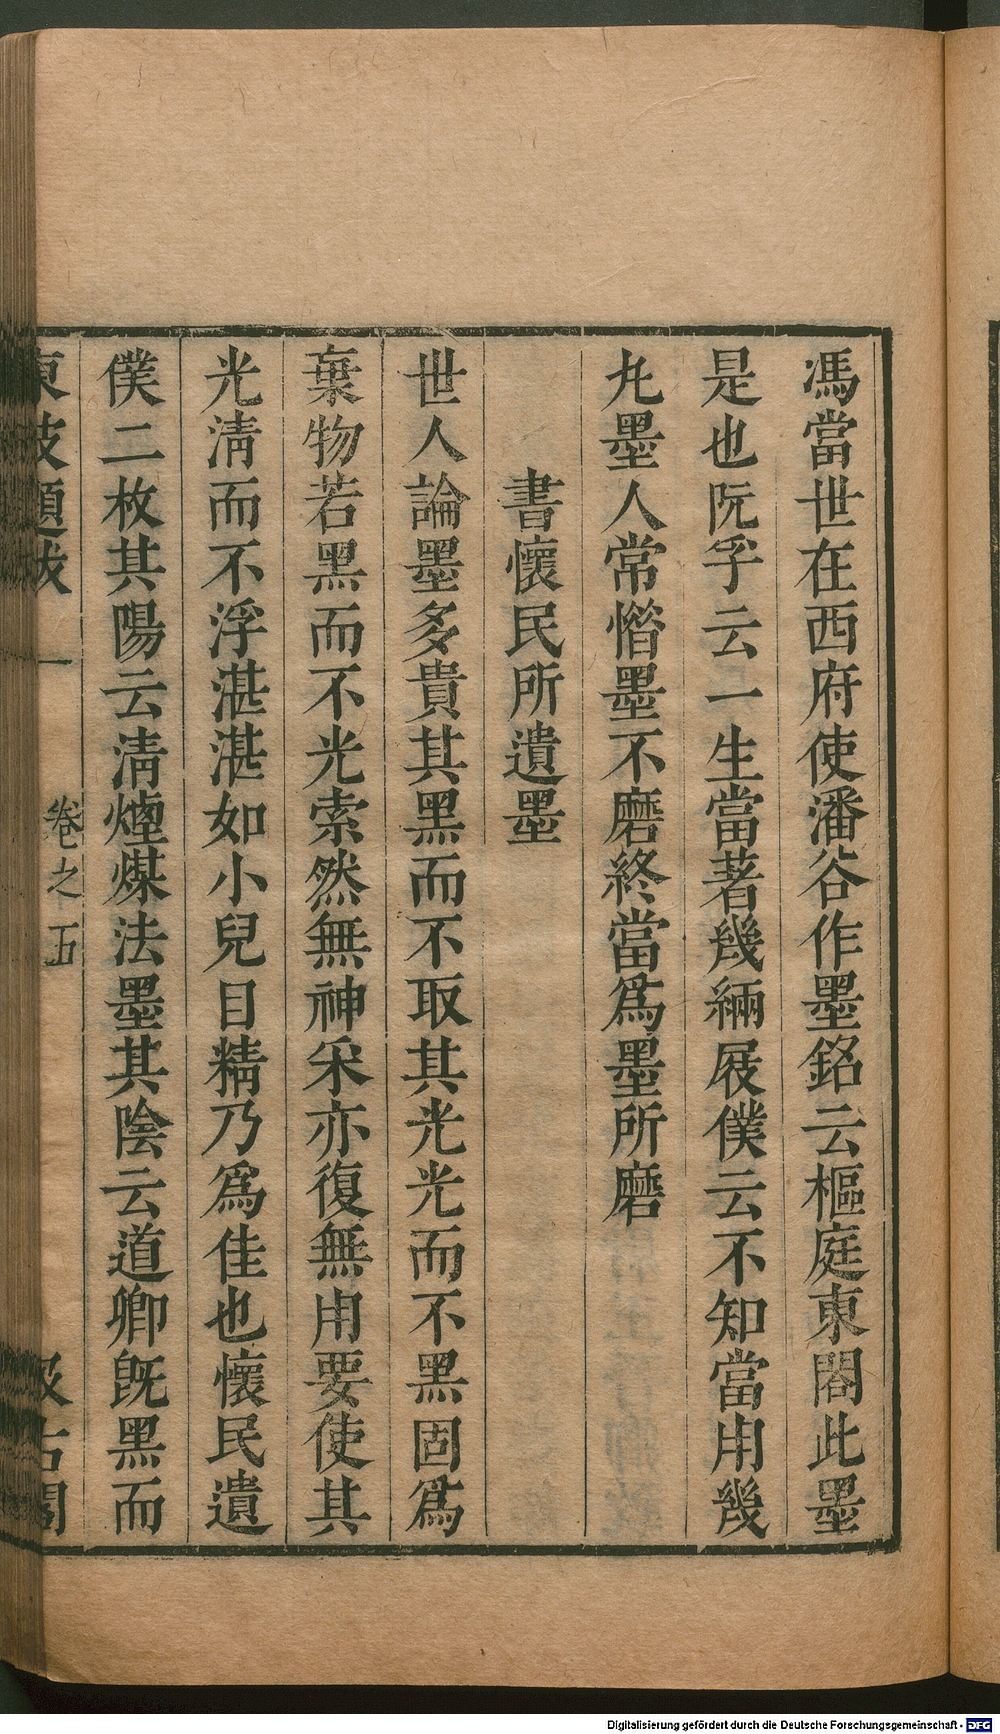 馮當世在西府使潘谷作墨銘云樞庭東閣此墨
是也阮孚云一生當著幾緉屐僕云不知當用幾
丸墨人常惜墨不磨終當爲墨所磨
書懷民所遺墨
世人論墨多貴其黑而不取其光光而不黑固爲
棄物若黑而不光索然無神采亦復無用要使其
光清而不浮湛湛如小兒目精乃爲佳也懷民遺
僕二枚其陽云清煙煤法墨其陰云道卿既黑而
東坡題跋 卷之五 汲古閣
Digitalisierung gefördert durch die Deutsche Forschungsgemeinschaft - DFG